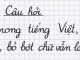 Câu hỏi
trong tiếng Việt,
, bỏ bớt chữ vẫn là